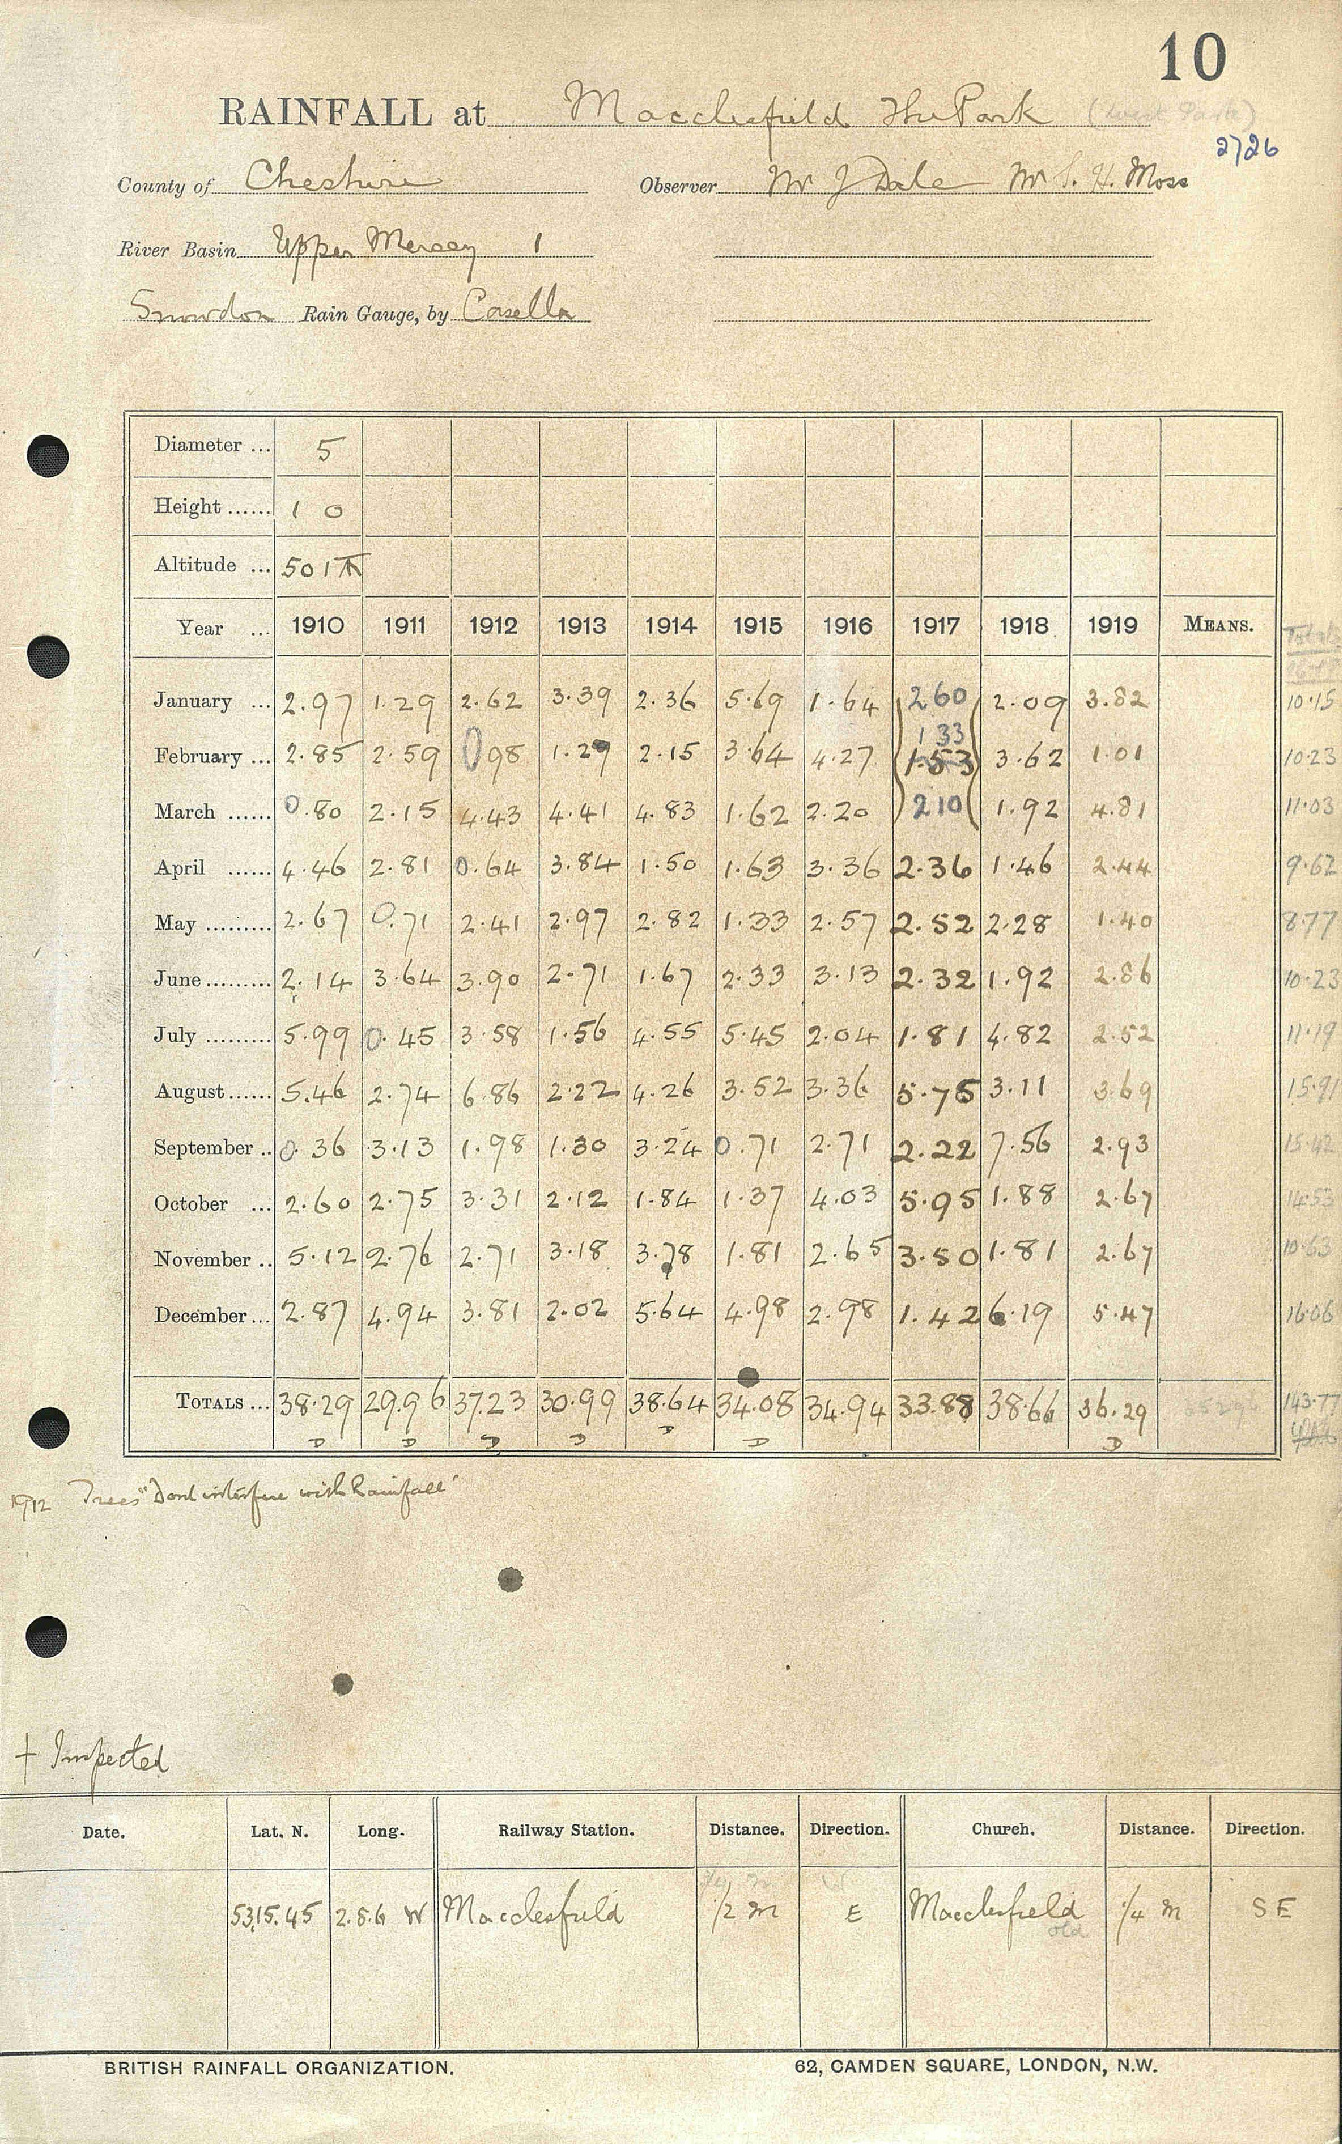 10
RAINFALL at Macclesfield The Park (West Park)
2726
County of Cheshire Observer Mr J Dale Mr S. H. Moss
River Basin Upper Mersey 1
Snowdon Rain Gauge, by Casella
Diameter ... 5
Height ...... 1 0
Altitude ... 501 ft
Year ... 1910 1911 1912 1913 1914 1915 1916 1917 1918 1919 MEANS. Total
January ... 2.97 1.29 2.62 3.39 2.36 5.69 1.64 2.60 2.09 3.82 10.15
1.33
February ... 2.85 2.59 0.98 1.29 2.15 3.64 4.27 1.53 3.62 1.01 10.23
March ...... 0.80 2.15 4.43 4.41 4.83 1.62 2.20 2.10 1.92 4.81 11.03
April ...... 4.46 2.81 0.64 3.84 1.50 1.63 3.36 2.36 1.46 2.44 9.62
May ......... 2.67 0.71 2.41 2.97 2.82 1.33 2.57 2.52 2.28 1.40 8.77
June ......... 2.14 3.64 3.90 2.71 1.67 2.33 3.13 2.32 1.92 2.86 10.23
July ......... 5.99 0.45 3.58 1.56 4.55 5.45 2.04 1.81 4.82 2.52 11.19
August ...... 5.46 2.74 6.86 2.22 4.26 3.52 3.36 5.75 3.11 3.69 15.91
September .. 0.36 3.13 1.98 1.30 3.24 0.71 2.71 2.22 7.56 2.93 15.42
October ... 2.60 2.75 3.31 2.12 1.84 1.37 4.03 5.95 1.88 2.67 14.53
November .. 5.12 2.76 2.71 3.18 3.78 1.81 2.65 3.50 1.81 2.67 10.63
December ... 2.87 4.94 3.81 2.02 5.64 4.98 2.98 1.42 6.19 5.47 16.06
TOTALS ... 38.29 29.96 37.23 30.99 38.64 34.08 34.94 33.88 38.66 36.29 143.77
D D D D D D D
1912 Trees "Dont interfere with Rainfall"
+ Inspected
Date. Lat. N. Long. Railway Station. Distance. Direction. Church. Distance. Direction.
53.15.45 2.8.6 W Macclesfield 1/2 m E Macclesfield 1/4 m SE
old
BRITISH RAINFALL ORGANIZATION. 62, CAMDEN SQUARE, LONDON, N.W.